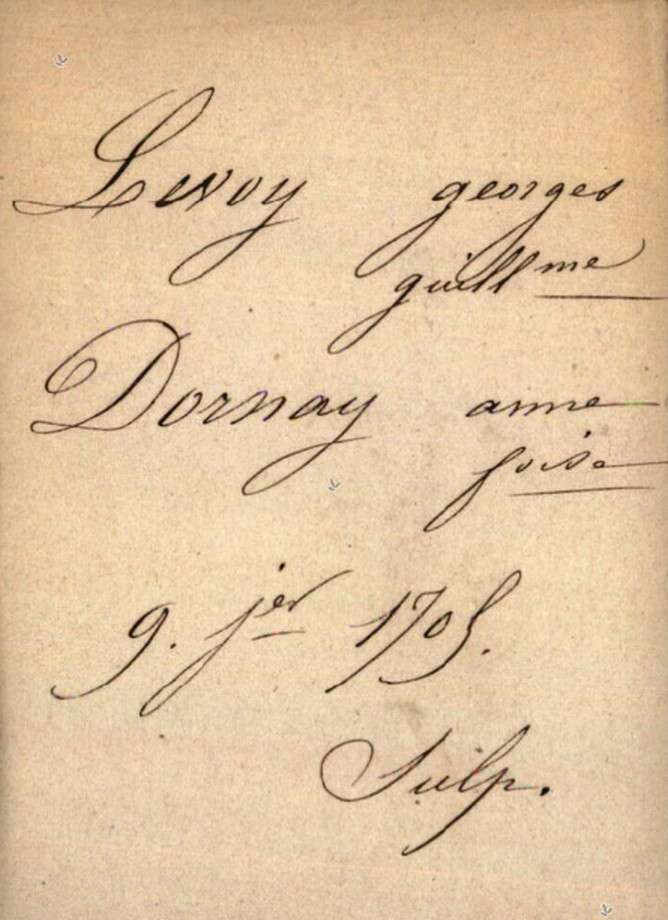 Levoy georges
guillme
Dornay anne
foise
9. jer 1705.
Sulp.